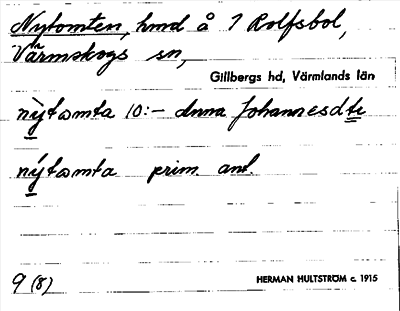 Nytomten, hmd å 7 Rolfsbol,
Värmskogs sn,
Gillbergs hd, Värmlands län
nỳtomta 10:- Anna Johannesdtr
nýtomta prim. ant.
9 (8)
HERMAN HULTSTRÖM c. 1915